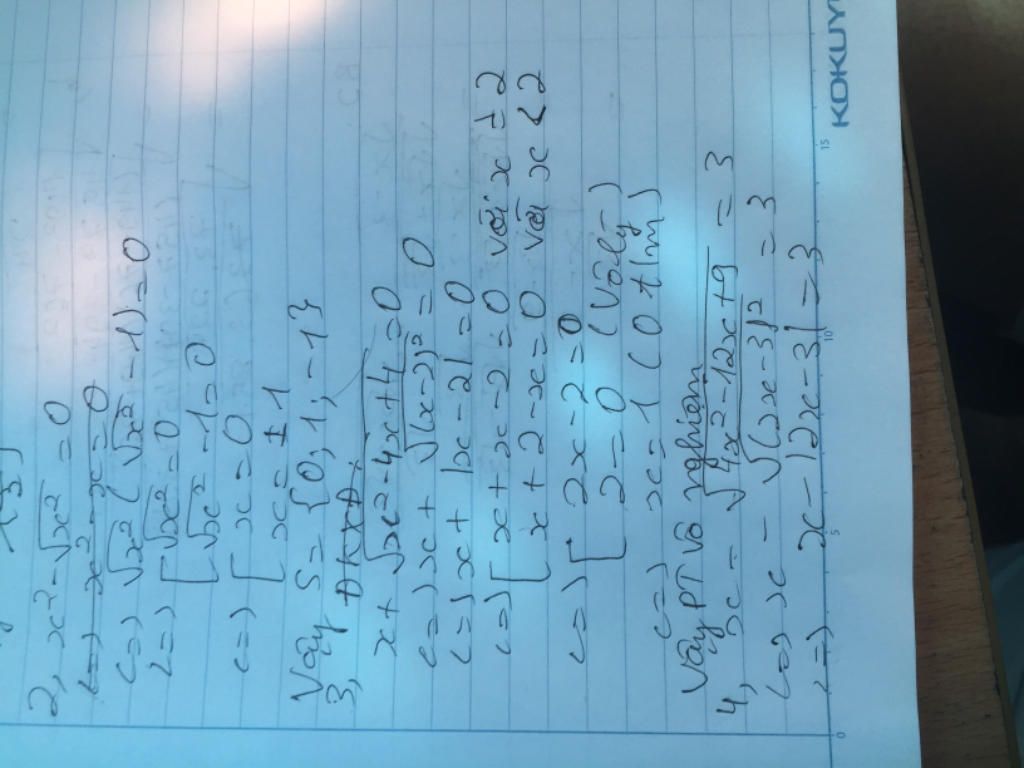 2, x² - √x² = 0
<=> x² - x = 0
<=> √x² (√x² - 1) = 0
<=> [ √x² = 0
[ √x² - 1 = 0
<=> [ x = 0
[ x = ± 1
Vậy S = {0; 1; -1}
3, ĐKXĐ:
x + √x² - 4x + 4 = 0
<=> x + √(x - 2)² = 0
<=> x + |x - 2| = 0
<=> [ x + x - 2 = 0 với x ≥ 2
[ x + 2 - x = 0 với x < 2
<=> [ 2x - 2 = 0
[ 2 = 0 (Vô lý)
<=> x = 1 (0 t/m)
Vậy PT vô nghiệm
4, x - √4x² - 12x + 9 = 3
<=> x - √(2x - 3)² = 3
<=> x - |2x - 3| = 3
0 5 10 15
KOKUY